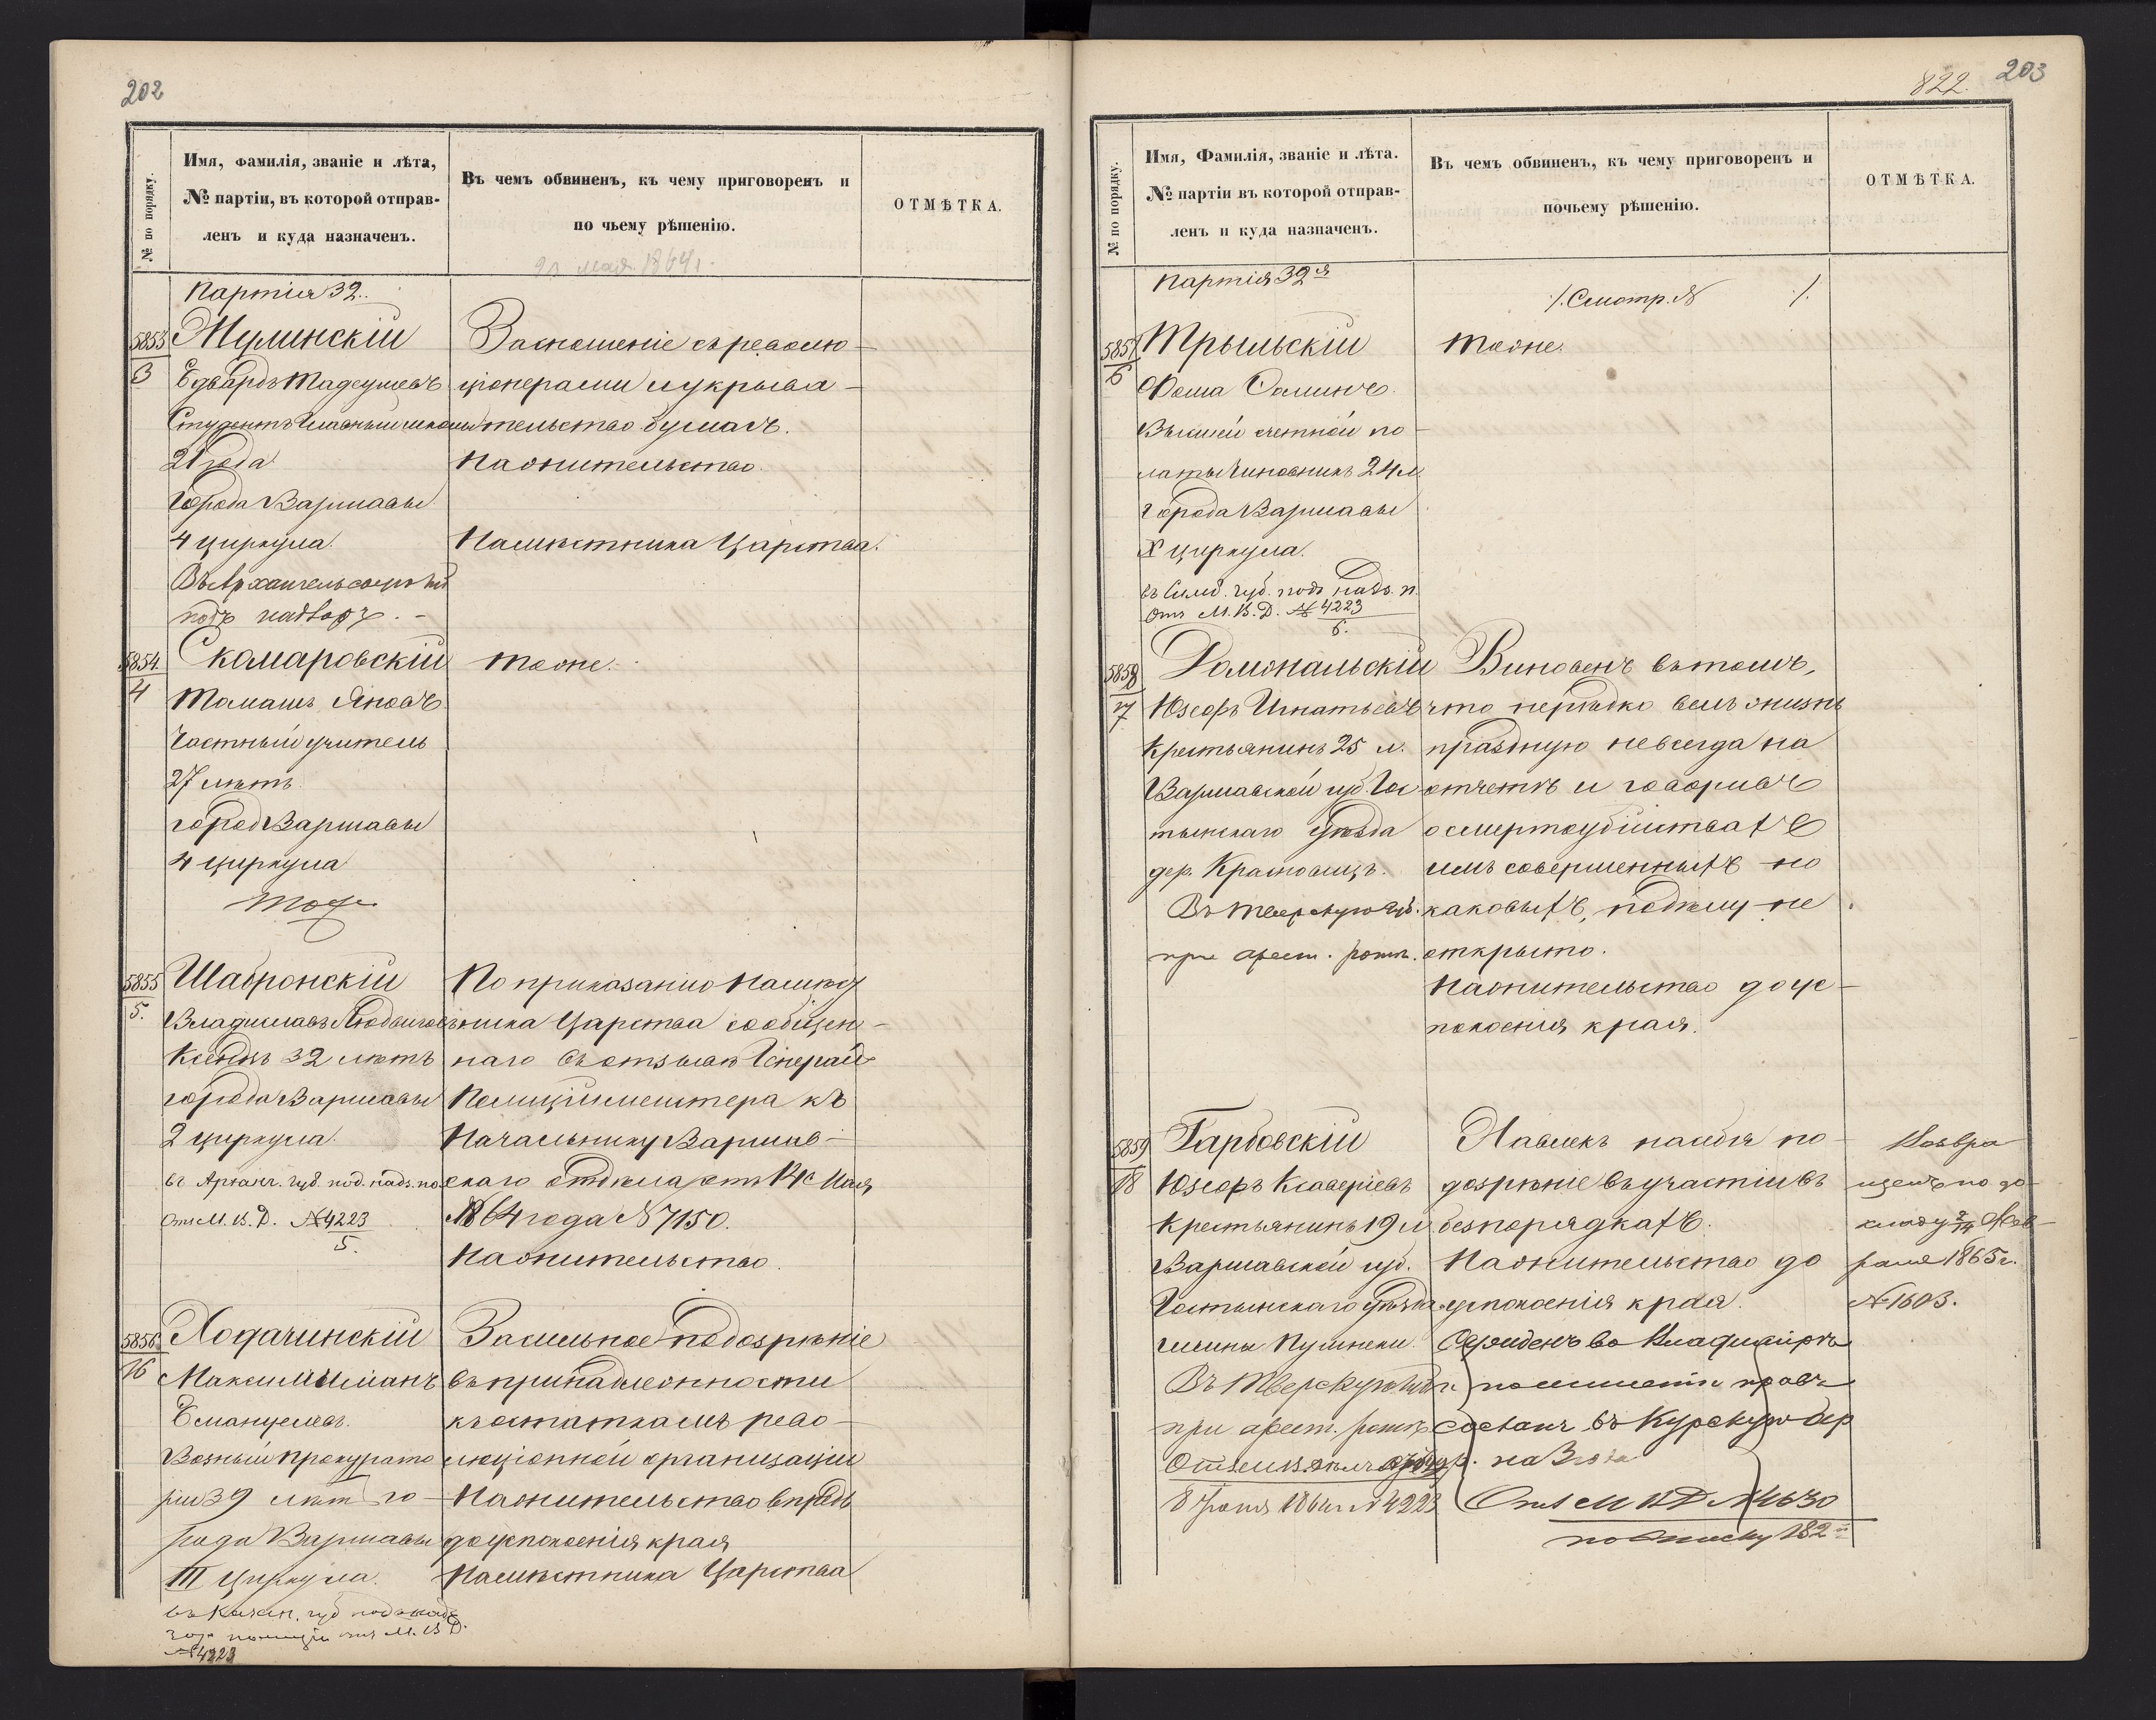 202
№ по порядку.
Имя, Фамилія, званіе и лѣта,
№ партіи, въ которой отправ-
ленъ и куда назначенъ.
Въ чемъ обвиненъ, къ чему приговоренъ и
по чьему рѣшенію.
ОТМѢТКА.
мая 1864 г.
Партія 32.
5853
3
Жулинскій
Едвардъ Тадеушевъ
Студентъ Главный школы
21 года
Города Варшавы
4 циркула.
подъ надзоръ. -
За сношеніе съ револю-
ціонерами и укрыва-
тельство бумагъ.
На жительство.
Намѣстника Царства.
5854.
4
Скамаровскій
Томашъ Яновъ
Частный учитель
27 лѣтъ.
город Варшавы
4 циркула
тоже
тоже.
5855
5.
Шабронскій
Владиславъ Людвиговъ
Ксендзъ 32 лѣтъ
города Варшавы
2 циркула.
въ Арханг. губ. под. надз. по
Отн. М. В. Д. № 4223
5.
По приказанію Намѣст
ника Царства сообщен-
наго въ отзывѣ Генерал
Полиціймейстера къ
Начальнику Варшав-
скаго отдѣла отъ Мая
1864 года № 7150.
На жительство.
5856
16
Ходачинскій
Максимиліанъ
Емануелевъ.
Возный прокурато
ріи 39 лѣт го-
рода Варшавы
III циркула.
въ Казан. губ под надз
полиціи отн М. В Д.
№ 4223
За сильное подозрѣніе
въ принадлежности
къ остаткамъ рево-
люціонной организаціи
На жительство впредь
до успокоенія края
Намѣстника Царства
822.
203
№ по порядку.
Имя, Фамилія, званіе и лѣта.
№ партіи въ которой отправ-
ленъ и куда назначенъ.
Въ чемъ обвиненъ, къ чему приговоренъ и
почьему рѣшенію.
ОТМѢТКА.
Партія 32я
/. Смотр. № /.
5857
6
Трыльскій
Фома Фоминъ
Высшей счетной по-
латы Чиновникъ 24 л.
Города Варшавы
X циркула.
въ Симб. губ. подъ надз. п.
Отн М. В. Д. № 4223
6.
тоже.
5858
17
Домональскій
Юзефъ Игнатьевъ
Крестьянинъ 25 л.
Варшавской губ. Гос
тынскаго уѣзда
дер.
Въ Тверскую губ.
при арест. ротѣ.
Виновенъ въ томъ,
что нерѣдко велъ жизнь
праздную невсегда на
отчетѣ и говорилъ
о смертоубійствахъ
имъ совершенныхъ но
каковыхъ, почему не
открыто.
На жительство до ус-
покоенія края.
5859
18
Гарбовскій
Юзефъ Ксаверіевъ
Крестьянинъ 19 л
Варшавской губ.
Гостынскаго уѣзда
гмины
Въ Тверскую губ
при арест. ротѣ
8 Іюня 1864 г № 4223
Навлекъ на себя по-
дозрѣніе въ участіи въ
безпорядкахъ.
На жительство до
успокоенія края.
въ Курскую
на 3 года
Отн М В Д № 4630
по списку 182
Возвра
щенъ по до-
кладу 2/14 Фев-
раля 1865 г.
№ 1603.